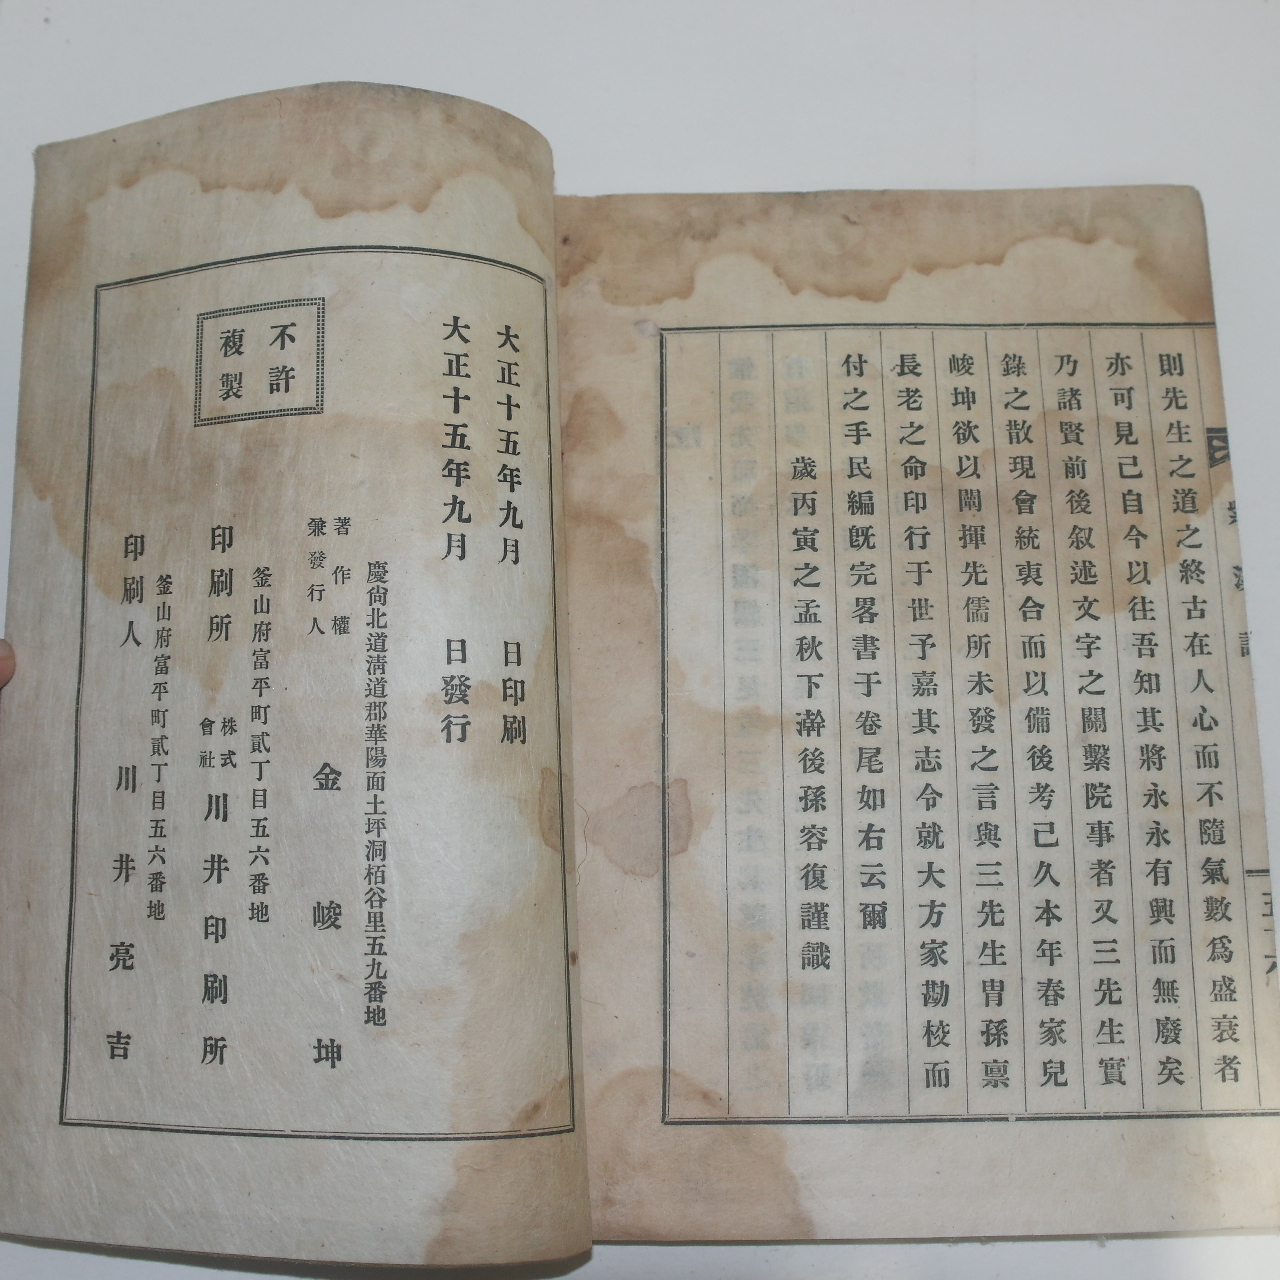 則先生之道之終古在人心而不隨氣數爲盛衰者
亦可見己自今以往吾知其將永永有興而無廢矣
乃諸賢前後叙述文字之關繫院事者又三先生實
錄之散現會統衷合而以備後考己久本年春家兒
峻坤欲以闡揮先儒所未發之言與三先生胄孫稟
長老之命印行于世予嘉其志令就大方家勘校而
付之手民編旣完畧書于卷尾如右云爾
歲丙寅之孟秋下澣後孫容復謹識
大正十五年九月 日印刷
大正十五年九月 日發行
不許
複製
慶尙北道淸道郡華陽面土坪洞栢谷里五九番地
著作權
兼發行人 金峻坤
釜山府富平町貳丁目五六番地
印刷所 株式會社 川井印刷所
釜山府富平町貳丁目五六番地
印刷人 川井亮吉